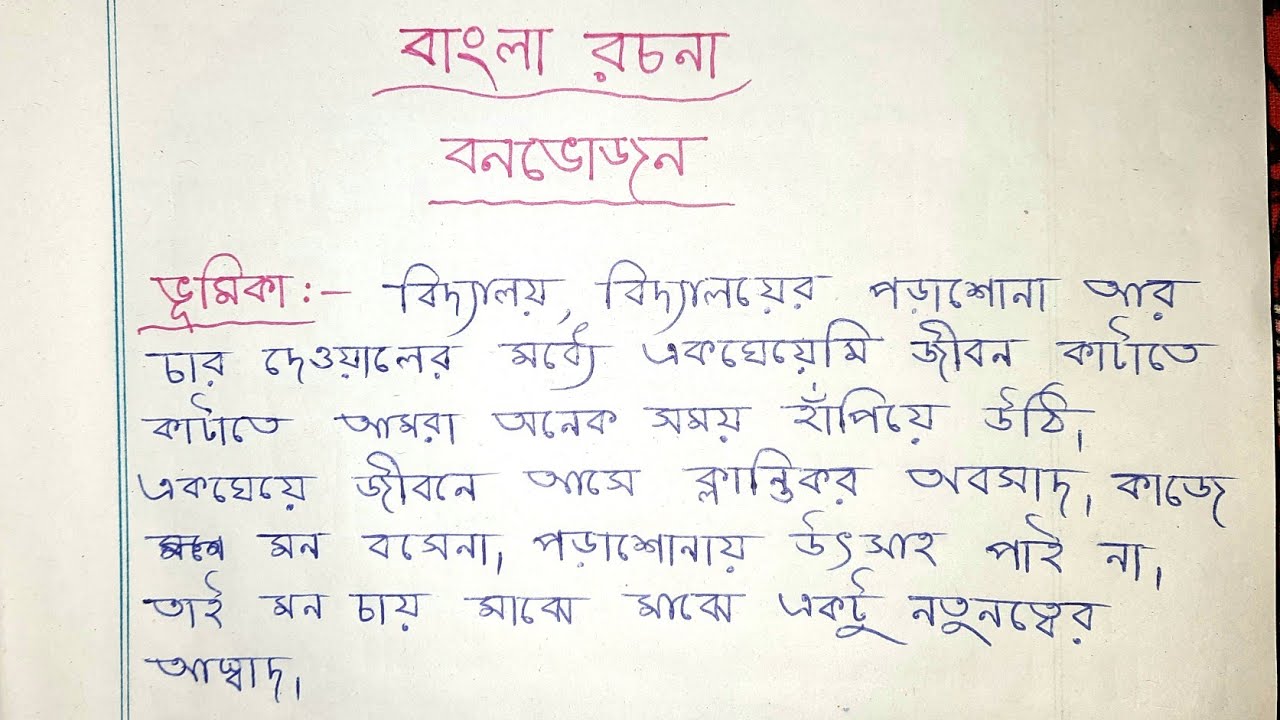 বাংলা রচনা
বনভোজন
ভূমিকা:- বিদ্যালয়, বিদ্যালয়ের পড়াশোনা আর
চার দেওয়ালের মধ্যে একঘেয়েমি জীবন কাটাতে
কাটাতে আমরা অনেক সময় হাঁপিয়ে উঠি।
একঘেয়ে জীবনে আসে ক্লান্তিকর অবসাদ। কাজে
মন বসেনা, পড়াশোনায় উৎসাহ পাই না।
তাই মন চায় মাঝে মাঝে একটু নতুনত্বের
আস্বাদ।